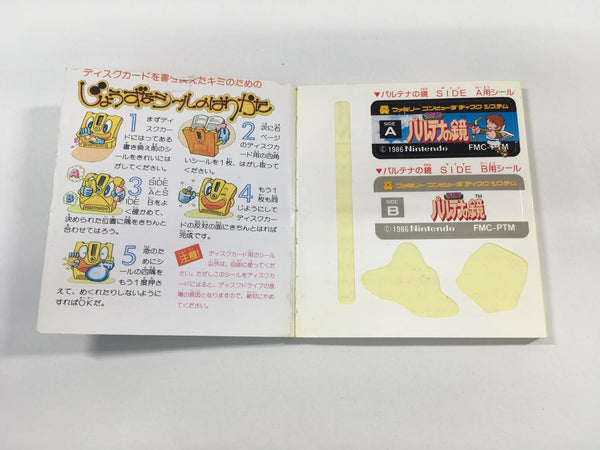 ディスクカードを書き換えたキミのための
じょうずなシールのはりかた
1 まずディ
スクカー
ドにはってある
書き換え前のシ
ールをきれいには
がしてください。
2 次に右
ページ
のディスクカ
ード用の四角
いシールを1枚、はがし取って
ください。
3 SIDE
AとS
IDE Bをよ
く確かめて、
決められた位置に隅をきちんと
合わせてはろう。
4 もう1
枚も同
じようにして
ディスクカー
ドの反対の面にきちんとはれば
完成です。
5 念のた
めにシ
ールの四隅を
もう1度押さ
えて、めくれたりしないように
すればOKだ。
注意!
ディスクカード用のシール
以外は、自由に使ってくださ
い。ただしこのシールをディスクカ
ードにはると、ディスクドライブの故
障の原因となりますので、絶対にやめ
てください。
▼パルテナの鏡 SIDE A用シール
ファミリー コンピュータ ディスク システム
SIDE
A
パルテナの鏡
©1986 Nintendo FMC-PTM
▼パルテナの鏡 SIDE B用シール
ファミリー コンピュータ ディスク システム
SIDE
B
パルテナの鏡 TM
©1986 Nintendo FMC-PTM